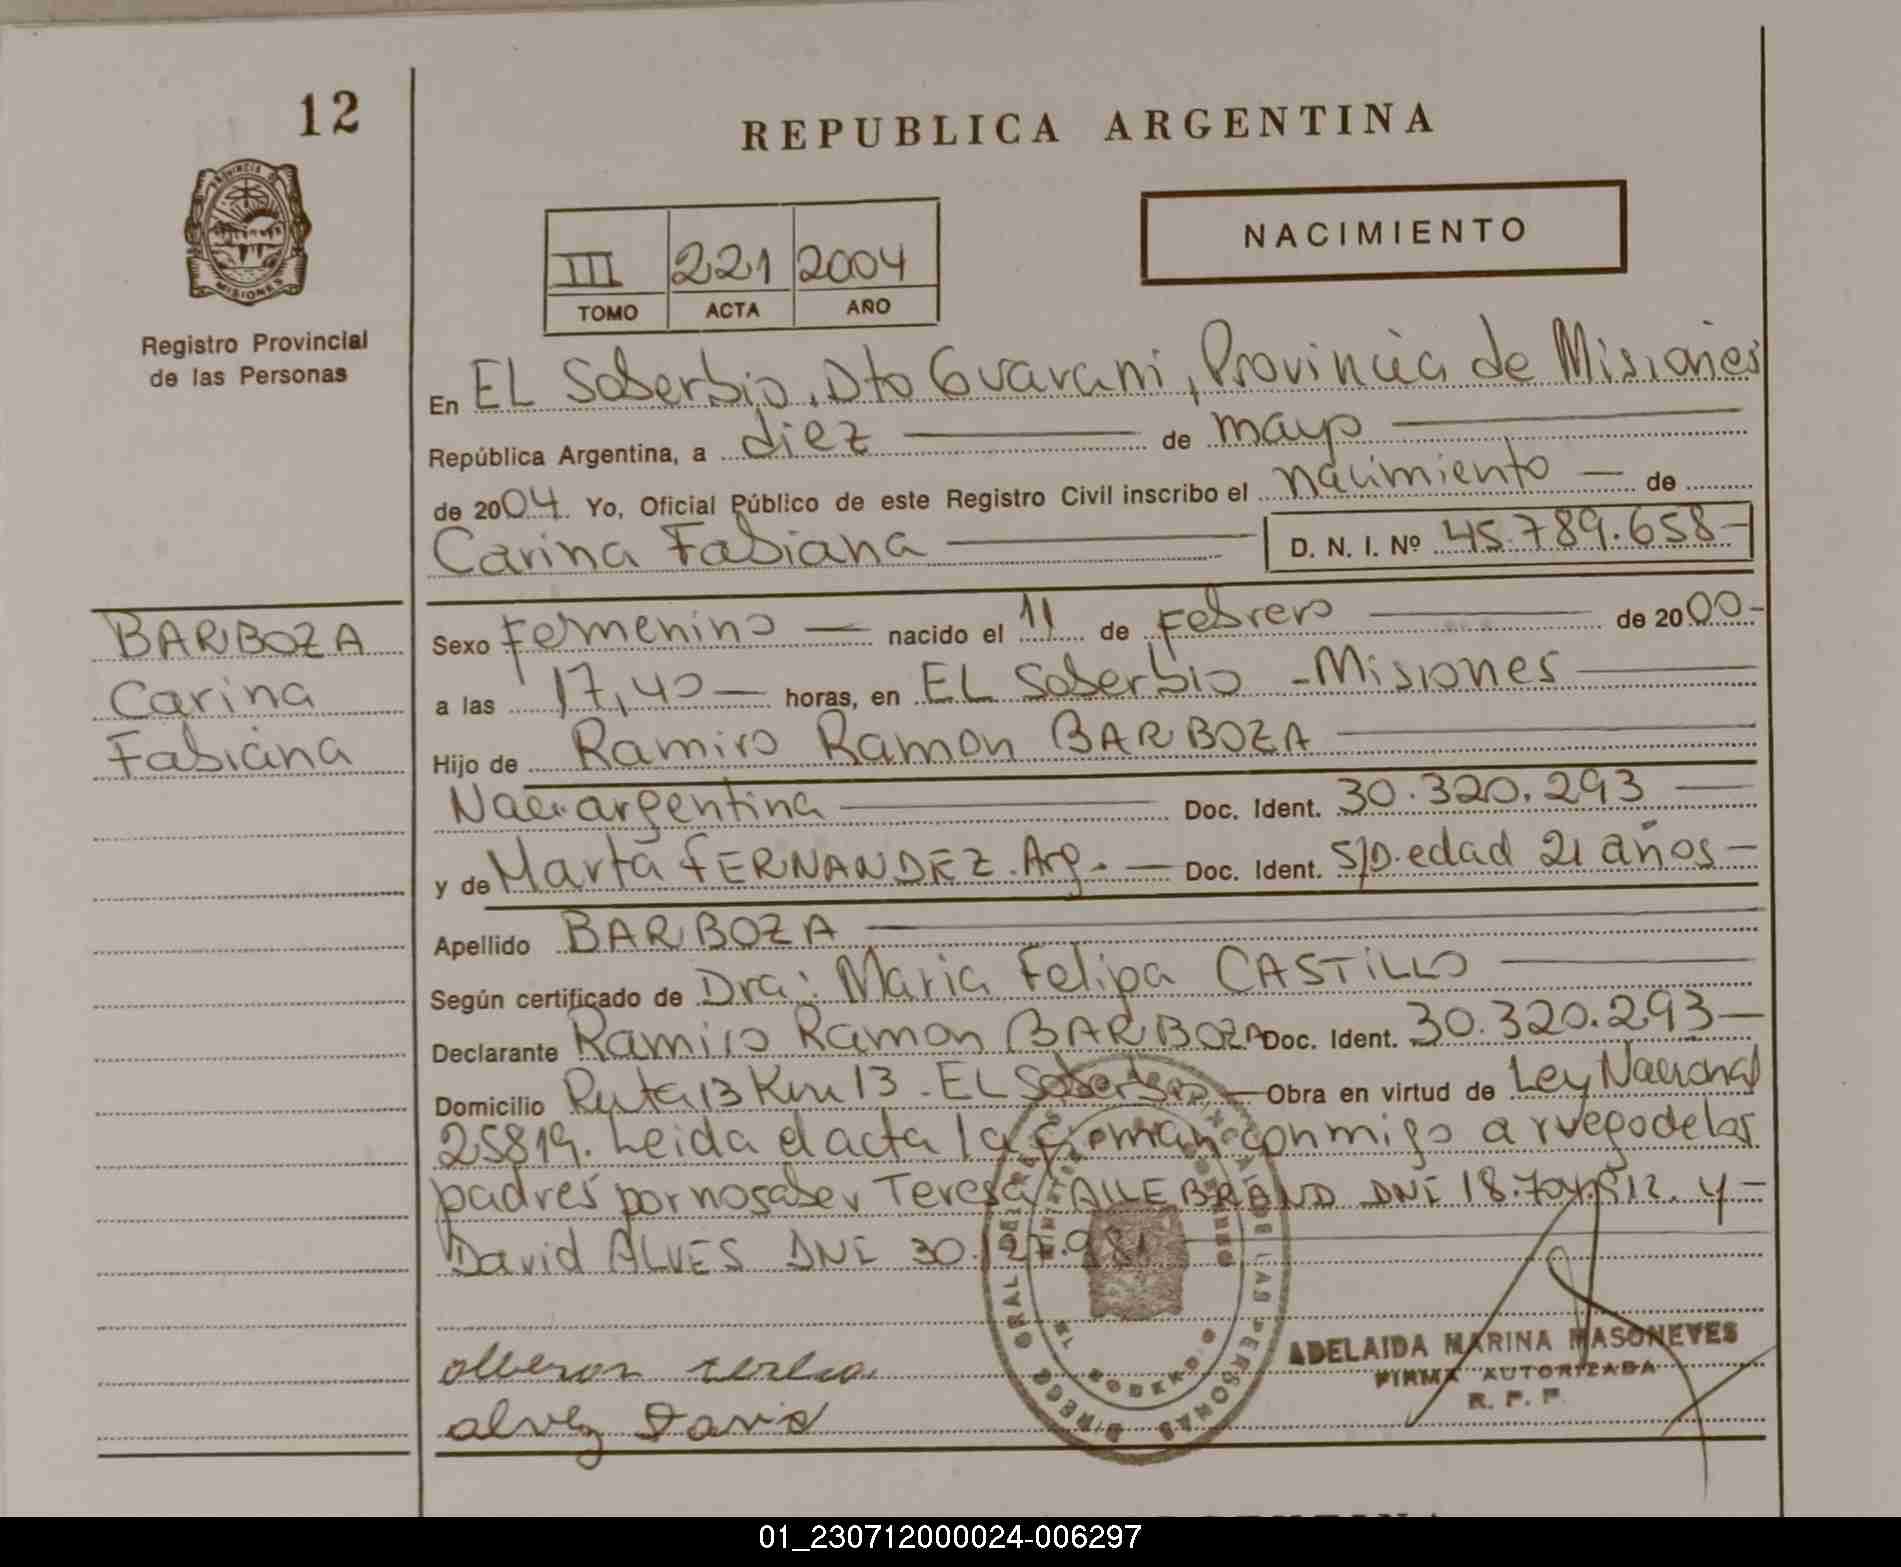 12
REPUBLICA ARGENTINA
NACIMIENTO
III 221 2004
TOMO ACTA AÑO
MISIONES
Registro Provincial
de las Personas
En EL Soberbio, Dto Guarani, Provincia de Misiones
República Argentina, a diez de mayo
de 2004. Yo, Oficial Público de este Registro Civil inscribo el nacimiento de
Carina Fabiana D. N. I. Nº 45.789.658
BARBOZA
Carina
Fabiana
Sexo Femenino nacido el 11 de Febrero de 2000
a las 17,40 horas, en EL Soberbio - Misiones
Hijo de Ramiro Ramon BARBOZA
Nac. argentina Doc. Ident. 30.320.293
y de Marta FERNANDEZ. Arg. Doc. Ident. S/D. edad 21 años
Apellido BARBOZA
Según certificado de Dra: Maria Felipa CASTILLO
Declarante Ramiro Ramon BARBOZA Doc. Ident. 30.320.293
Domicilio Ruta 13 Km 13 - EL Soberbio Obra en virtud de Ley Nacional
25819. Leida el acta la firman conmigo a ruego de los
padres por no saber Teresa ALLEBRAND DNI 18. y
David ALVES DNI 30.127.981
alvez David
ADELAIDA MARINA MASONEVES
FIRMA AUTORIZADA
R. P. P.
01_230712000024-006297